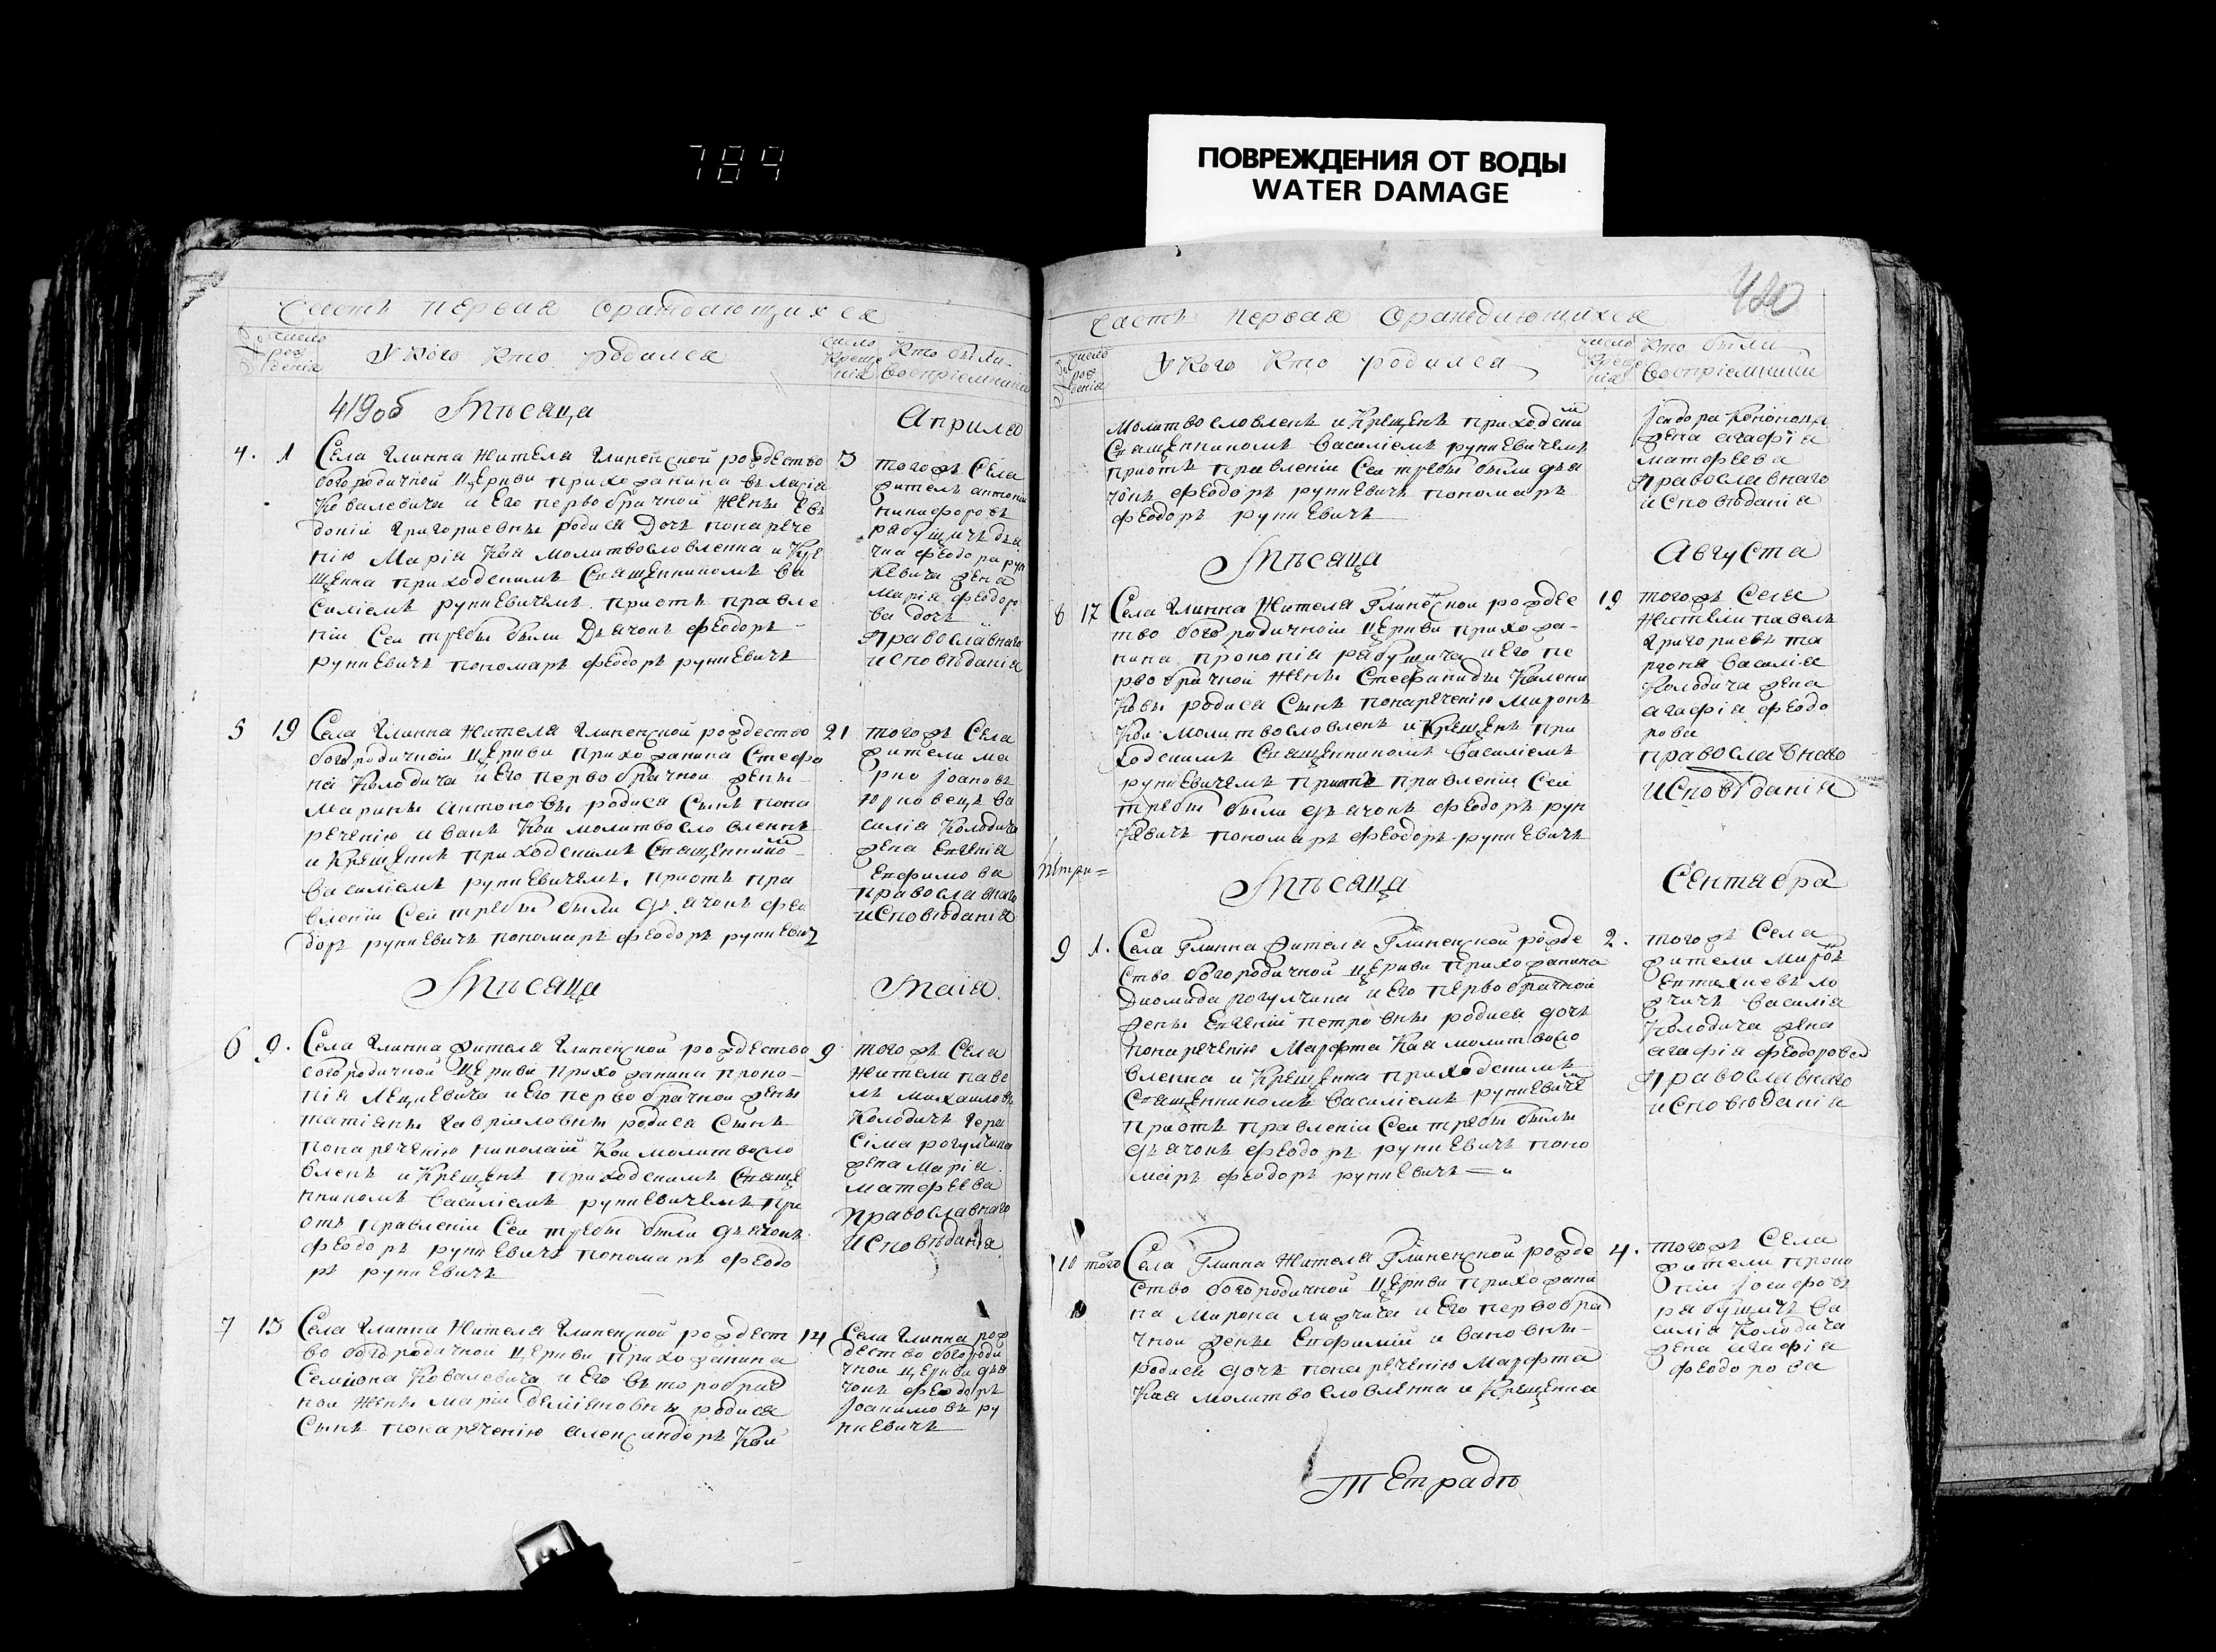 789
ПОВРЕЖДЕНИЯ ОТ ВОДЫ
WATER DAMAGE
Часть первая ораждающихся
число рождения
У кого кто родился
число крещенія
Кто были воспріемники
419 об Мѣсяца
Априля
4. 1 3
Села Глинна жителя Глиненской рождество
богородичной церкви прихожанина
Ковалевича и его первобрачной жены Ев
докіи Григориевны родися дочь понарече
нію Марія коя молитвословленна и кре
щенна приходскимъ священникомъ Ва
силіемъ рупневичемъ приотъ правле
ніи сеи требы были дьячокъ феодоръ
рупневичъ пономаръ феодоръ рупневичъ
тогожъ села
житель антоній
никифоровъ
рабущичъ дья
чка феодора руп
невича жена
Марія феодоро
ва дочь
православнаго
исповѣданія
5 19 21
Села Глинна жителя Глиненской рождество
богородичной церкви прихожанина Стефа
на Колодича и его первобрачной жены
Марины антоновы родися сынъ пона
речению иванъ кои молитвословленъ
и крещенъ приходскимъ священнико
Василіемъ рупневичемъ приотъ пра
вленіи сеи требы были дьячокъ фео
доръ рупневичъ пономаръ феодоръ рупневичъ
тогожъ села
жители ма
рко іоановъ
ва
силія Колодича
жена Евгенія
Ефимова
православнаго
исповѣданія
Мѣсяца
Маія
6 9. 9
Села Глинна жителя Глиненской рождество
богородичной церкви прихожанина проко
пія Лецкевича и его первобрачной жены
татіяны гавріиловны родися сынъ
понаречению николаій кои молитвосло
вленъ и крещенъ приходскимъ свяще
нникомъ Василіемъ рупневичемъ при
отъ правленіи сеи требы были дьячокъ
феодоръ рупневичъ пономаръ феодо
ръ рупневичъ
тогожъ села
жители паве
лъ михаиловъ
Колодичъ гера
сіма рогулчина
жена Марія
Матфеева
православнаго
исповѣданія
7 13 14
Села Глинна жителя Глиненской рождест
во богородичной церкви прихожанина
Семіона Ковалевича и его второбрач
ной жены маріи даміановны родися
сынъ понаречению александеръ кои
Села Глинна рож
дество богороди
чной церкви дья
чокъ феодоръ
іоакимовъ ру
пневичъ
420
Часть первая ораждающихся
число рождения
У кого кто родился
число крещенія
Кто были воспріемники
молитвословленъ и крещенъ приходским
священникомъ Василіемъ рупневичемъ
приотъ правленіи сеи требы были дья
чокъ феодоръ рупневичъ пономаръ
феодоръ рупневичъ
жена агафія
матфеева
православнаго
исповѣданія
Мѣсяца
Августа
8 17 19
Села Глинна жителя Глиненской рождес
тво богородичной церкви прихожа
нина прокопія рабущича и его пе
рвобрачной жены Стефаниды Калени
ковы родися сынъ понаречению Миронъ
кои молитвословленъ и крещенъ при
ходскимъ священникомъ Василіемъ
рупневичемъ приотъ правленіи сеи
требы были дьячокъ феодоръ руп
невичъ пономаръ феодоръ рупневичъ
тогожъ села
жители павелъ
григориевъ
василія
Колодича жена
агафія феодо
рова
православнаго
исповѣданія
Мѣсяца
Сентября
9 1. 2.
Села Глинна жителя Глиненской рожде
ство богородичной церкви прихожанина
Диомида рогулчина и его первобрачной
жены Евгеніи петровны родися дочь
понаречению Марфта кая молитвосло
вленна и крещенна приходскимъ
священникомъ Василіемъ рупневиче
приотъ правленіи сеи требы были
дьячокъ феодоръ рупневичъ поно
маръ феодоръ рупневичъ
тогожъ села
жители Миронъ
жчичъ Василія
Колодича жена
агафія феодорова
православнаго
исповѣданія
10 того 4.
Села Глинна жителя Глиненской рожде
ство богородичной церкви прихожани
на Мирона лажчича и его первобра
чной жены Евфиміи ивановны
родися дочь понаречению Марфта
кая молитвословленна и крещенна
тогожъ села
жители проко
пій іосифовъ
рабущичъ ва
силія Колодича
жена агафія
феодорова
тетрадь